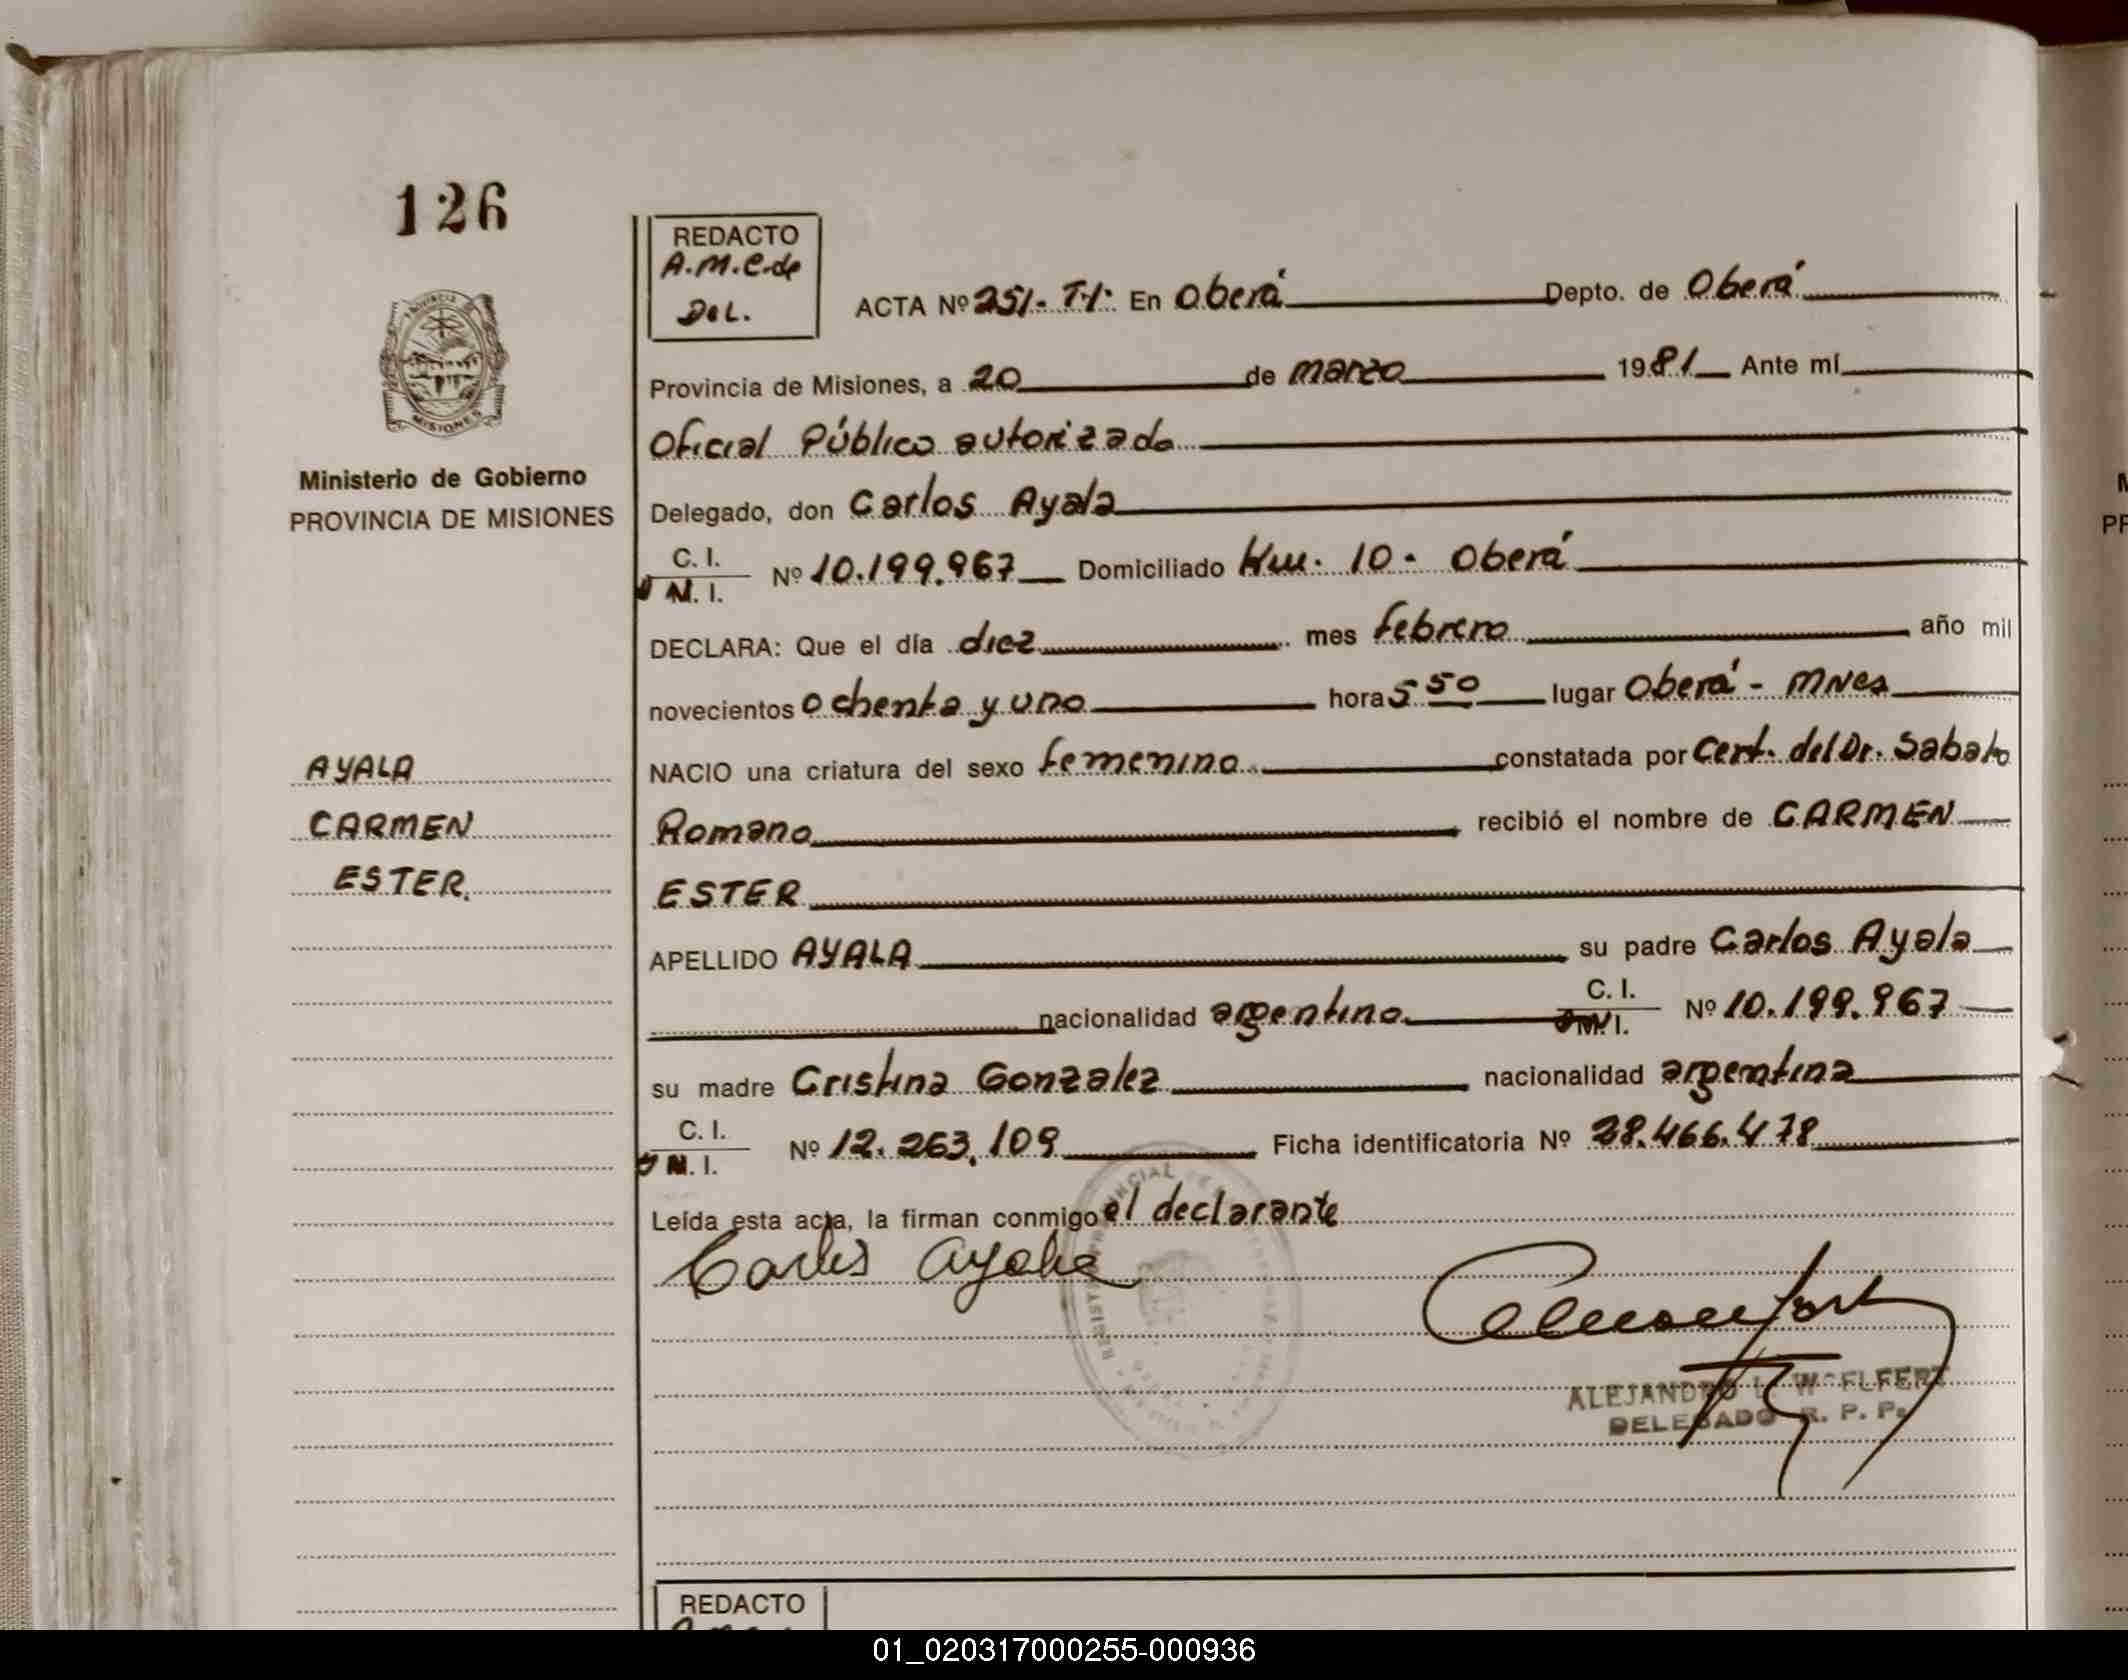 126
REDACTO
A.M.C. de
Del.
ACTA Nº 251- T-I- En Oberá Depto. de Oberá
Provincia de Misiones, a 20 de marzo 1981 Ante mí
Oficial Público autorizado
Delegado, don Carlos Ayala
C. I.
M. I.
Nº 10.199.967 Domiciliado Km. 10 - Oberá
DECLARA: Que el día diez mes febrero año mil
novecientos ochenta y uno hora 5 50 lugar Oberá - Mnes
NACIO una criatura del sexo femenino constatada por Cert. del Dr. Sabato
Romano recibió el nombre de CARMEN
ESTER
APELLIDO AYALA su padre Carlos Ayala
nacionalidad argentino C. I.
M. I.
Nº 10.199.967
su madre Cristina Gonzalez nacionalidad argentina
C. I.
M. I.
Nº 12.263.109 Ficha identificatoria Nº 28.466.478
Leída esta acta, la firman conmigo el declarante
Carlos Ayala
ALEJANDRO
DELEGADO R. P. P.
PROVINCIA
MISIONES
Ministerio de Gobierno
PROVINCIA DE MISIONES
AYALA
CARMEN
ESTER.
REDACTO
01_020317000255-000936